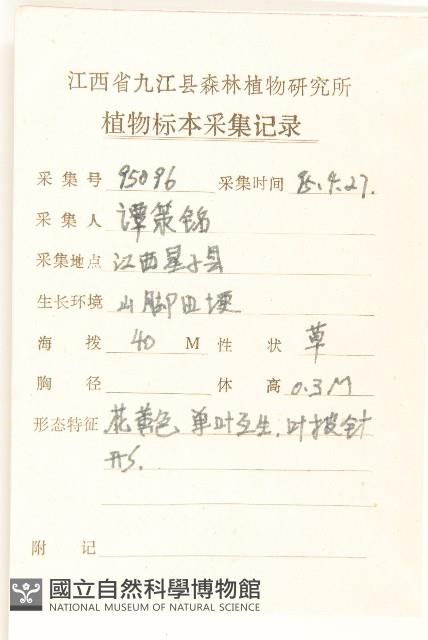 江西省九江县森林植物研究所
植物标本采集记录
采集号 95096 采集时间 95.4.27.
采集人 谭策铭
采集地点 江西星子县
生长环境 山脚田埂
海拨 40 M 性状 草
胸径 体高 0.3M
形态特征 花黄色 单叶互生. 叶披针
形.
附记
國立自然科學博物館
NATIONAL MUSEUM OF NATURAL SCIENCE